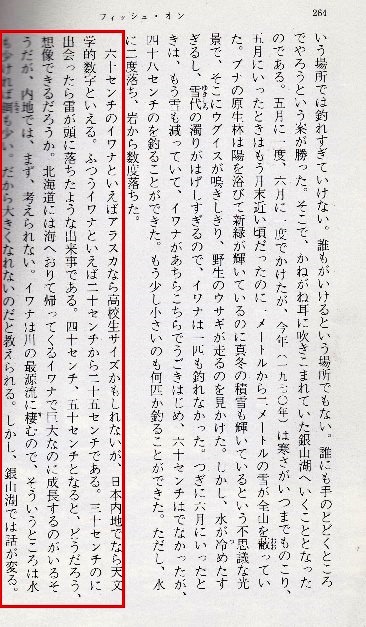 フィッシュ・オン
264
いう場所では釣れすぎていけない。誰もがいけるという場所でもない。誰にも手のとどくところ
でやろうという案が勝った。そこで、かねがね耳に吹きこまれていた銀山湖へいくこととなった
のである。五月に一度、六月に一度でかけたが、今年(一九七〇年)は寒さがいつまでものこり、
五月にいったときはもう月末近い頃だったのに一メートルから二メートルの雪が全山を蔽ってい
た。ブナの原生林は陽を浴びて新緑が輝いているのに真冬の積雪も輝いているという不思議な光
景で、そこにウグイスが鳴きしきり、野生のウサギが走るのを見かけた。しかし、水が冷めたす
ぎるし、雪代の濁りがはげしすぎるので、イワナは一匹も釣れなかった。つぎに六月にいったと
ゆきしろ
きは、もう雪も減っていて、イワナがあちらこちらでうごきはじめ、六十センチはでなかったが、
四十八センチのを釣ることができた。もう少し小さいのも何匹か釣ることができた。ただし、水
に二度落ち、岩から数度落ちた。
六十センチのイワナといえばアラスカなら高校生サイズかもしれないが、日本内地でなら天文
学的数字といえる。ふつうイワナといえば二十センチから二十五センチである。三十センチのに
出会ったら雷が頭に落ちたような出来事である。四十センチ、五十センチとなると、どうだろう、
想像できるだろうか。北海道には海へおりて帰ってくるイワナで巨大なのに成長するのがいるそ
うだが、内地では、まず、考えられない。イワナは川の最源流に棲むので、そういうところは水
も少ければ餌も少い。だから大きくなれないのだと教えられる。しかし、銀山湖では話が変る。